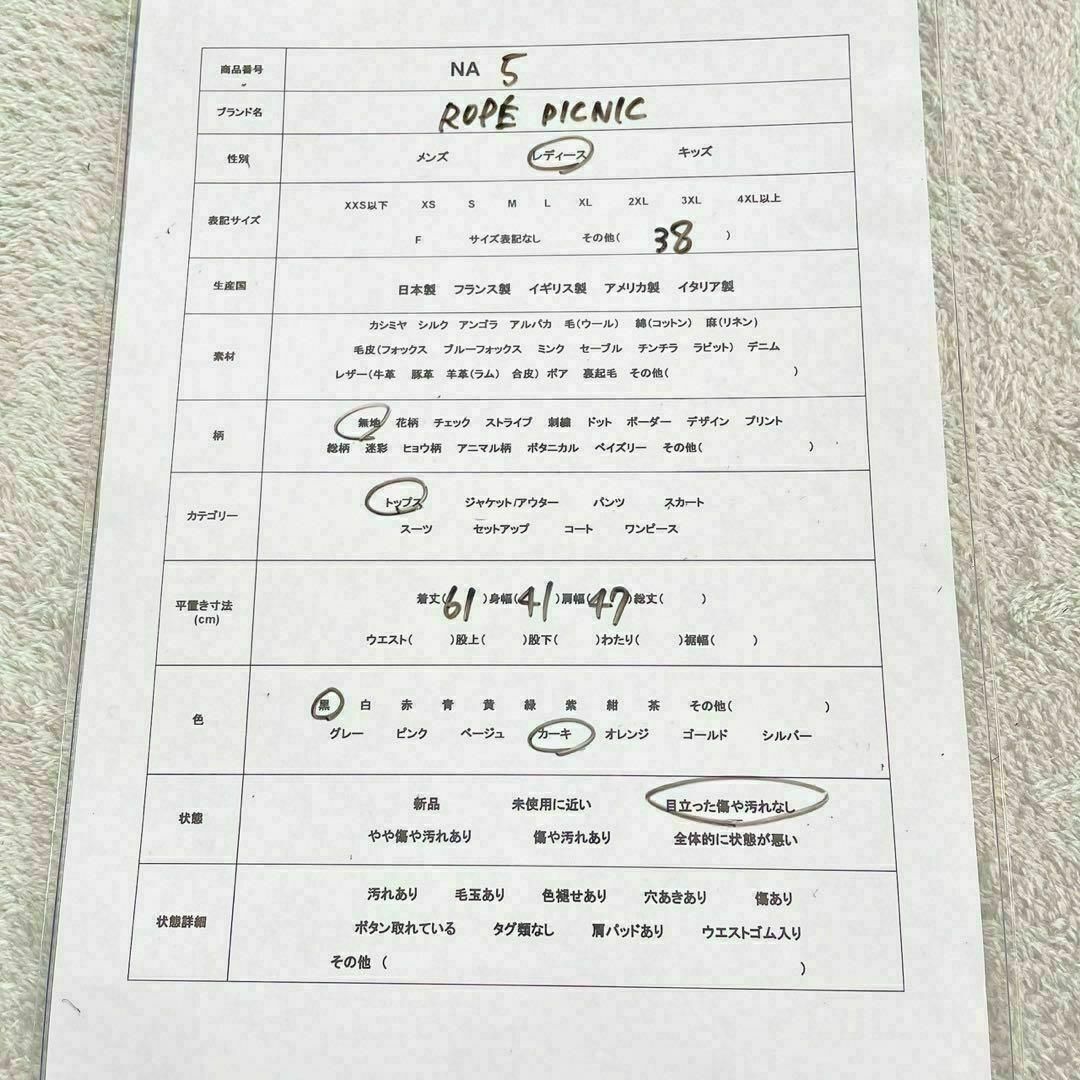 商品番号 NA 5
ブランド名 ROPÉ PICNIC
性別 メンズ レディース キッズ
表記サイズ
XXS以下 XS S M L XL 2XL 3XL 4XL以上
F サイズ表記なし その他( 38 )
生産国 日本製 フランス製 イギリス製 アメリカ製 イタリア製
素材
カシミヤ シルク アンゴラ アルパカ 毛(ウール) 綿(コットン) 麻(リネン)
毛皮(フォックス ブルーフォックス ミンク セーブル チンチラ ラビット) デニム
レザー(牛革 豚革 羊革(ラム) 合皮) ボア 裏起毛 その他( )
柄
無地 花柄 チェック ストライプ 刺繍 ドット ボーダー デザイン プリント
総柄 迷彩 ヒョウ柄 アニマル柄 ボタニカル ペイズリー その他( )
カテゴリー
トップス ジャケット/アウター パンツ スカート
スーツ セットアップ コート ワンピース
平置き寸法
(cm)
着丈( 61 )身幅( 41 )肩幅( 47 )総丈( )
ウエスト( )股上( )股下( )わたり( )裾幅( )
色
黒 白 赤 青 黄 緑 紫 紺 茶 その他( )
グレー ピンク ベージュ カーキ オレンジ ゴールド シルバー
状態
新品 未使用に近い 目立った傷や汚れなし
やや傷や汚れあり 傷や汚れあり 全体的に状態が悪い
状態詳細
汚れあり 毛玉あり 色褪せあり 穴あきあり 傷あり
ボタン取れている タグ類なし 肩パッドあり ウエストゴム入り
その他 ( )